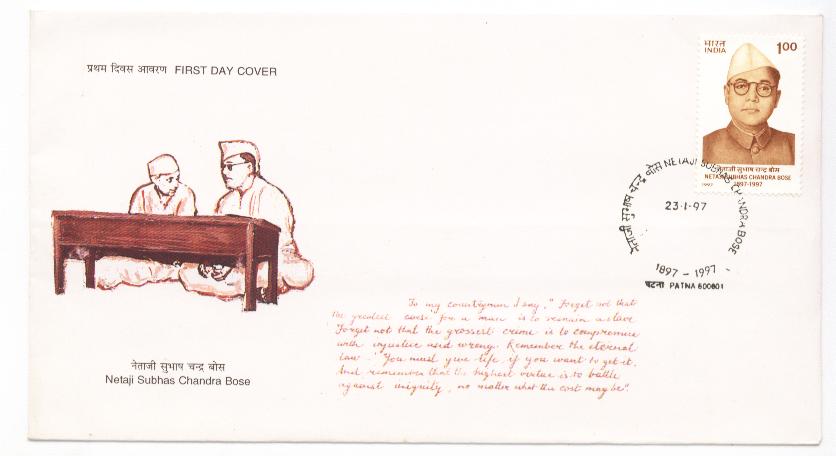 प्रथम दिवस आवरण FIRST DAY COVER
भारत
INDIA
1.00
नेताजी सुभाष चन्द्र बोस
NETAJI SUBHAS CHANDRA BOSE
1997 1897-1997
नेताजी सुभाष चन्द्र बोस NETAJI SUBHAS CHANDRA BOSE
23-1-97
1897 - 1997
पटना PATNA 800801
To my countrymen I say, "Forget not that
the greatest curse for a man is to remain a slave
Forget not that the grossest crime is to compromise
with injustice and wrong. Remember the eternal
law - You must give life, if you want to get it.
And remember that the highest virtue is to battle
against iniquity, no matter what the cost may be".
नेताजी सुभाष चन्द्र बोस
Netaji Subhas Chandra Bose